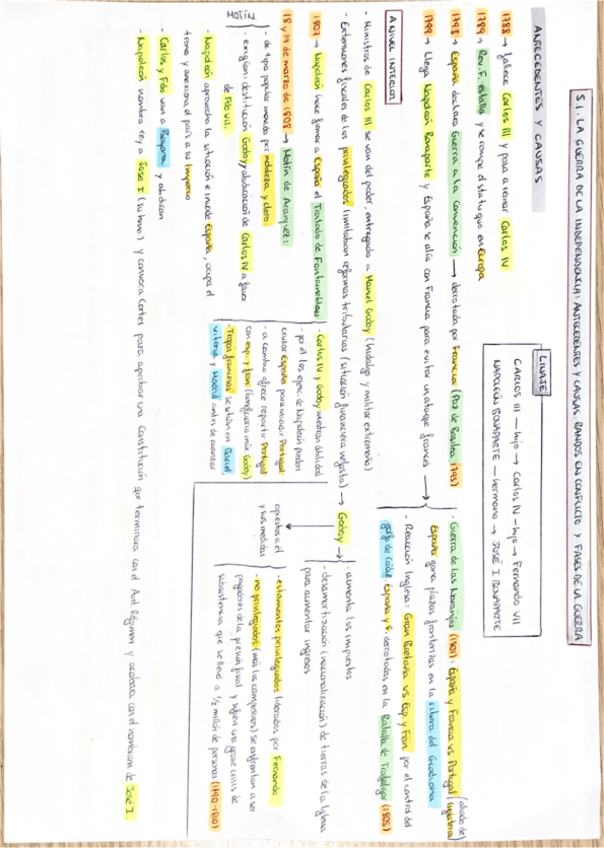 5.1. LA GUERRA DE LA INDEPENDENCIA: ANTECEDENTES Y CAUSAS. BANDOS EN CONFLICTO Y FASES DE LA GUERRA
ANTECEDENTES Y CAUSAS
LINAJE
CARLOS III — hijo → CARLOS IV — hijo → FERNANDO VII
NAPOLEÓN BONAPARTE — hermano → JOSÉ I BONAPARTE
1788 → fallece Carlos III y pasa a reinar Carlos IV
1789 → Rev. F. estalla y se rompe el statu quo en Europa
1793 → España declara Guerra a la Convención → derrotada por Francia (Paz de Basilea 1795)
1799 → Llega Napoleón Bonaparte y España se alía con Francia para evitar un ataque francés →
- Guerra de las Naranjas (1801): España y Francia vs Portugal (aliado de Inglaterra)
España gana plazas fronterizas en la ribera del Guadiana
- Reacción Inglesa: Gran Bretaña vs Esp y Fran por el control del
golfo de Cádiz. España y F. derrotadas en la Batalla de Trafalgar (1805)
A NIVEL INTERIOR
- Ministros de Carlos III se van del poder, entregado a Manuel Godoy (hidalgo y militar extremeño)
- Extensiones fiscales de los privilegiados limitaban reformas tributarias (situación financiera nefasta) → Godoy →
- aumenta los impuestos
- desamortización (nacionalización) de tierras de la Iglesia
para aumentar ingresos
opuestos a él
y sus medidas
- estamentos privilegiados liderados por Fernando
- no privilegiados (más los campesinos) se enfrentan a ser
pagadores de la presión fiscal y sufren una grave crisis de
subsistencia que se llevó a 1/2 millón de personas (1790-1810)
1807 → Napoleón hace firmar a España el Tratado de Fontainebleau
- Carlos IV y Godoy muestran debilidad
- por él los ejérc. de Napoleón pueden
cruzar España para invadir Portugal
- a cambio ofrece repartir Portugal
con esp. y fran (beneficiaría más Godoy)
- Tropas francesas se sitúan en
Vitoria y Madrid antes de avanzar
18 y 19 de marzo de 1808 → Motín de Aranjuez:
- de tipo popular movido por nobleza y clero
- exigían: destitución Godoy y abdicación de Carlos IV a favor
de Fdo VII.
MOTÍN
- Napoleón aprovecha la situación e invade España, ocupa el
trono y anexiona el país a su Imperio
- Carlos y Fdo van a Bayona y abdican
- Napoleón nombra rey a José I (su hno) y convoca Cortes para aprobar una Constitución que terminara con el Ant. Régimen y acabara con el nombram. de José I